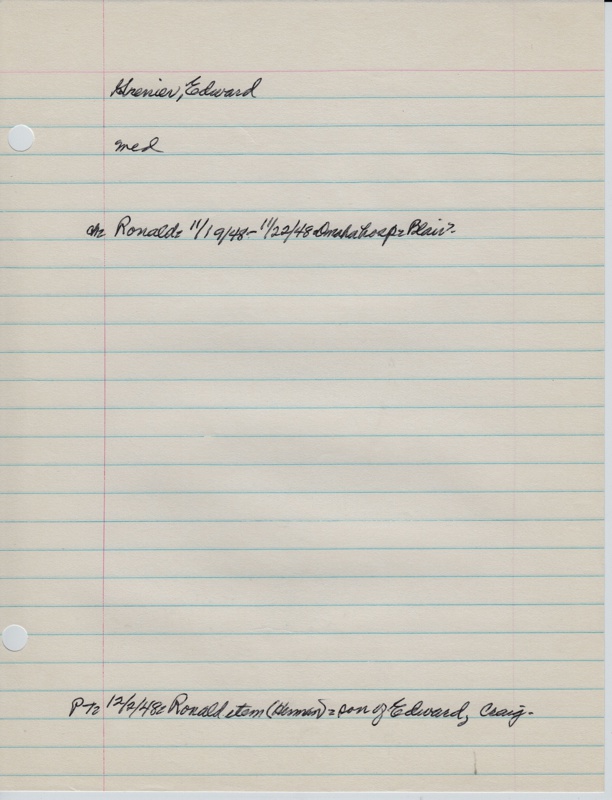 Grenier, Edward
med
ch= Ronald= 11/19/48- 11/22/48 Omaha hosp= Blair-
PT= 12/2/48= Ronald item (Herman) = son of Edward, Craig-